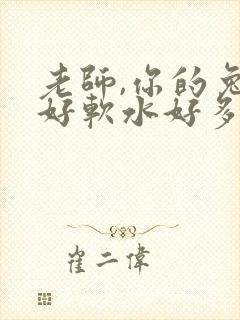 老師,你的兔
好軟水好多
崔二偉